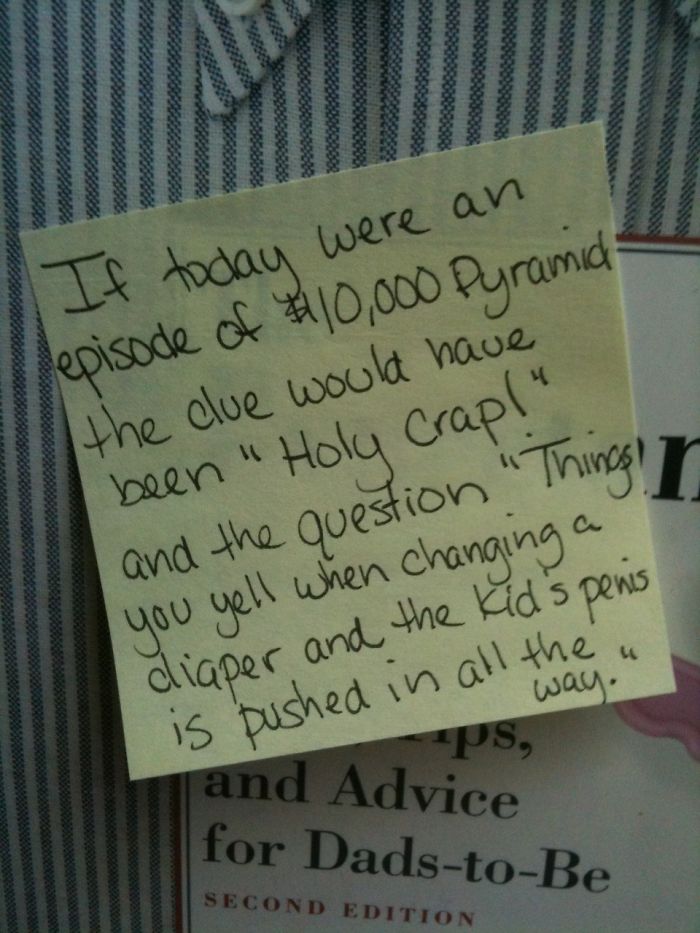 If today were an
episode of $10,000 Pyramid
the clue would have
been "Holy Crap!"
and the question "Things
you yell when changing a
diaper and the kid's penis
is pushed in all the
way."
and Advice
for Dads-to-Be
SECOND EDITION